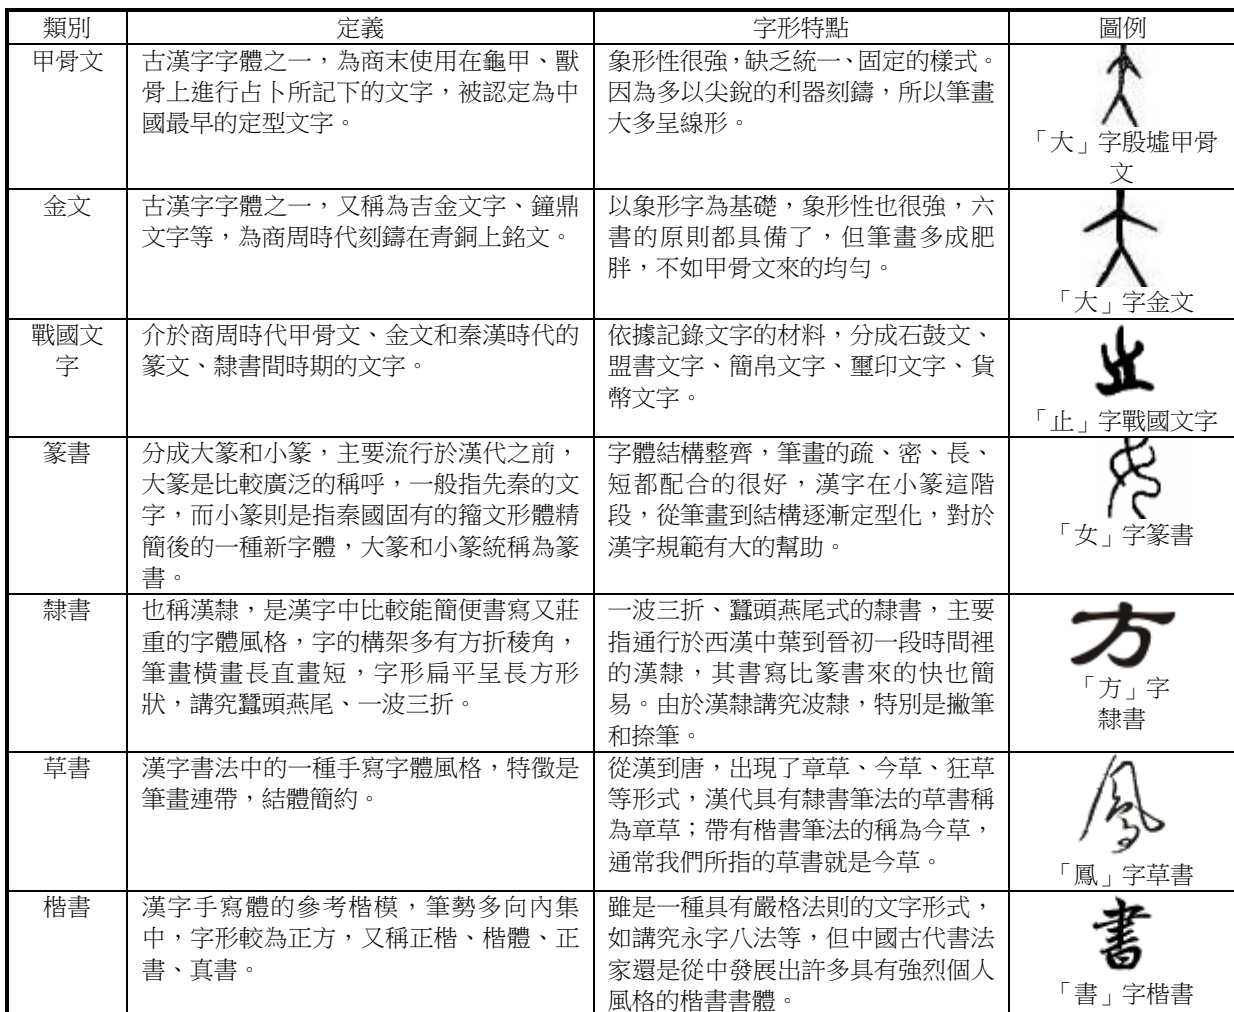 類別 定義 字形特點 圖例
甲骨文
古漢字字體之一，為商末使用在龜甲、獸
骨上進行占卜所記下的文字，被認定為中
國最早的定型文字。
象形性很強，缺乏統一、固定的樣式。
因為多以尖銳的利器刻鑄，所以筆畫
大多呈線形。
「大」字殷墟甲骨
文
金文
古漢字字體之一，又稱為吉金文字、鐘鼎
文字等，為商周時代刻鑄在青銅上銘文。
以象形字為基礎，象形性也很強，六
書的原則都具備了，但筆畫多成肥
胖，不如甲骨文來的均勻。
「大」字金文
戰國文
字
介於商周時代甲骨文、金文和秦漢時代的
篆文、隸書間時期的文字。
依據記錄文字的材料，分成石鼓文、
盟書文字、簡帛文字、璽印文字、貨
幣文字。
止
「止」字戰國文字
篆書
分成大篆和小篆，主要流行於漢代之前，
大篆是比較廣泛的稱呼，一般指先秦的文
字，而小篆則是指秦國固有的籀文形體精
簡後的一種新字體，大篆和小篆統稱為篆
書。
字體結構整齊，筆畫的疏、密、長、
短都配合的很好，漢字在小篆這階
段，從筆畫到結構逐漸定型化，對於
漢字規範有大的幫助。
女
「女」字篆書
隸書
也稱漢隸，是漢字中比較能簡便書寫又莊
重的字體風格，字的構架多有方折稜角，
筆畫橫畫長直畫短，字形扁平呈長方形
狀，講究蠶頭燕尾、一波三折。
一波三折、蠶頭燕尾式的隸書，主要
指通行於西漢中葉到晉初一段時間裡
的漢隸，其書寫比篆書來的快也簡
易。由於漢隸講究波隸，特別是撇筆
和捺筆。
方
「方」字
隸書
草書
漢字書法中的一種手寫字體風格，特徵是
筆畫連帶，結體簡約。
從漢到唐，出現了章草、今草、狂草
等形式，漢代具有隸書筆法的草書稱
為章草；帶有楷書筆法的稱為今草，
通常我們所指的草書就是今草。
鳳
「鳳」字草書
楷書
漢字手寫體的參考楷模，筆勢多向內集
中，字形較為正方，又稱正楷、楷體、正
書、真書。
雖是一種具有嚴格法則的文字形式，
如講究永字八法等，但中國古代書法
家還是從中發展出許多具有強烈個人
風格的楷書書體。
書
「書」字楷書